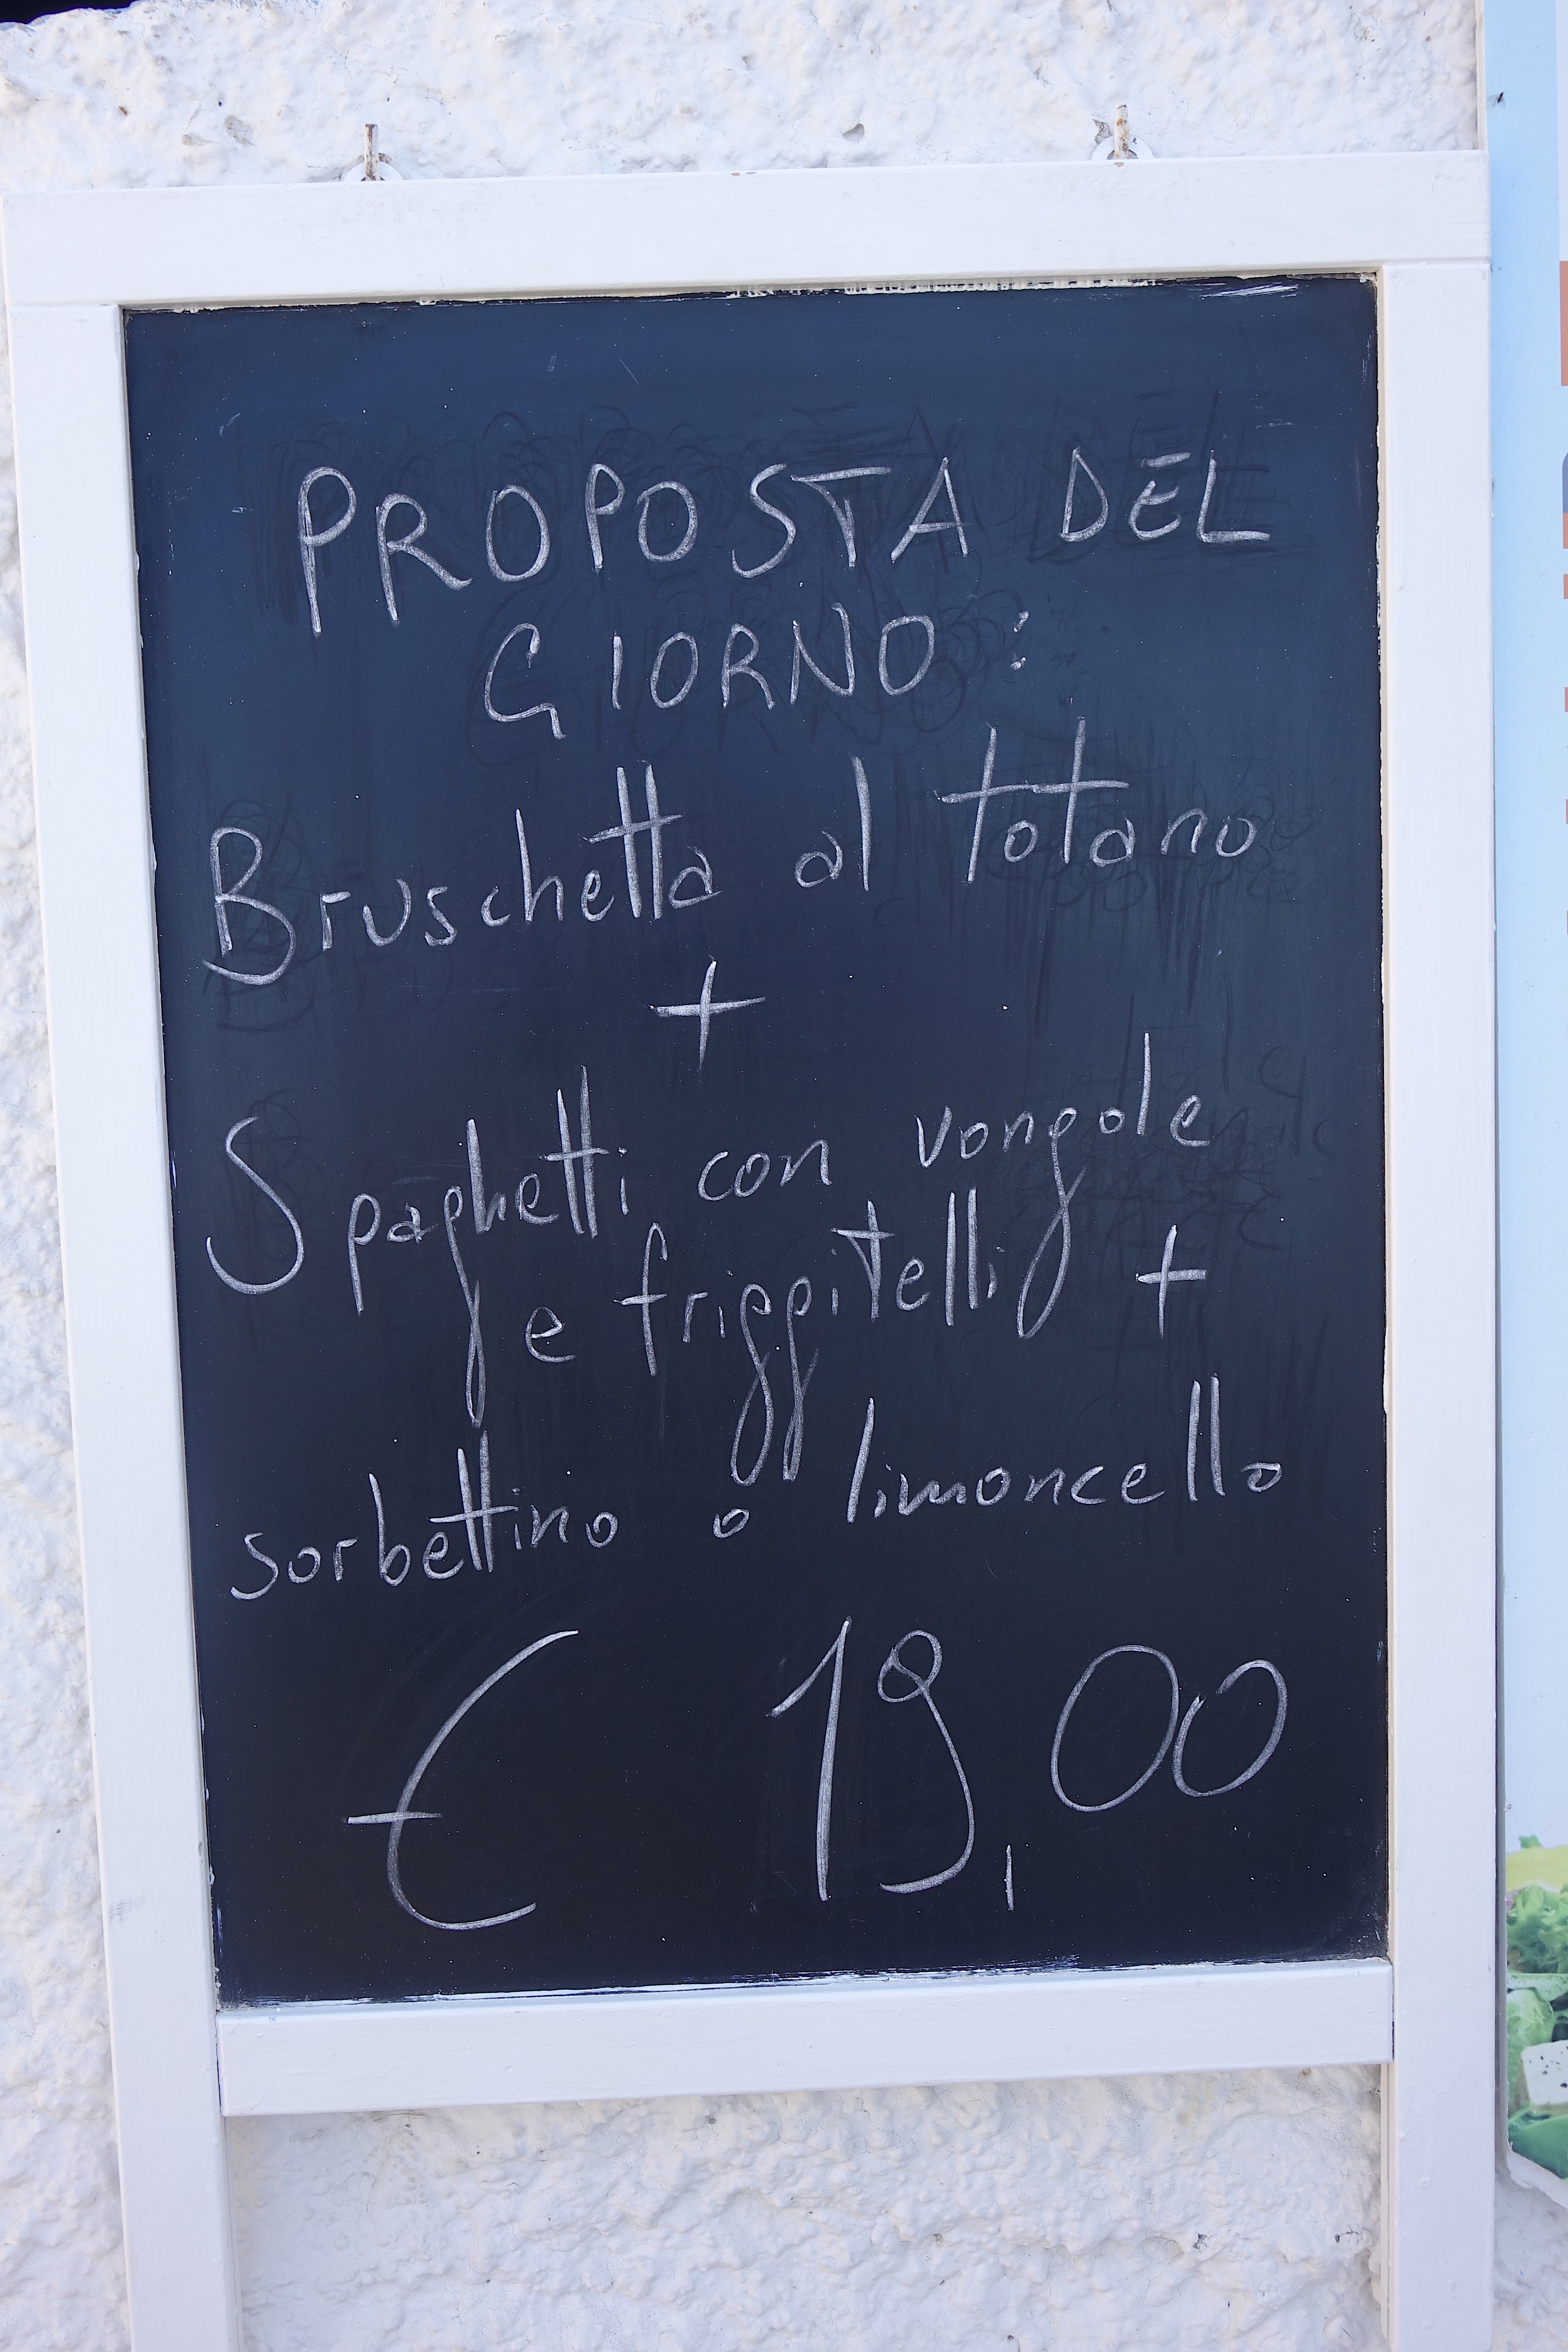 PROPOSTA DEL
GIORNO:
Bruschetta al totano
+
Spaghetti con vongole
e friggitelli +
sorbettino o limoncello
€ 19,00